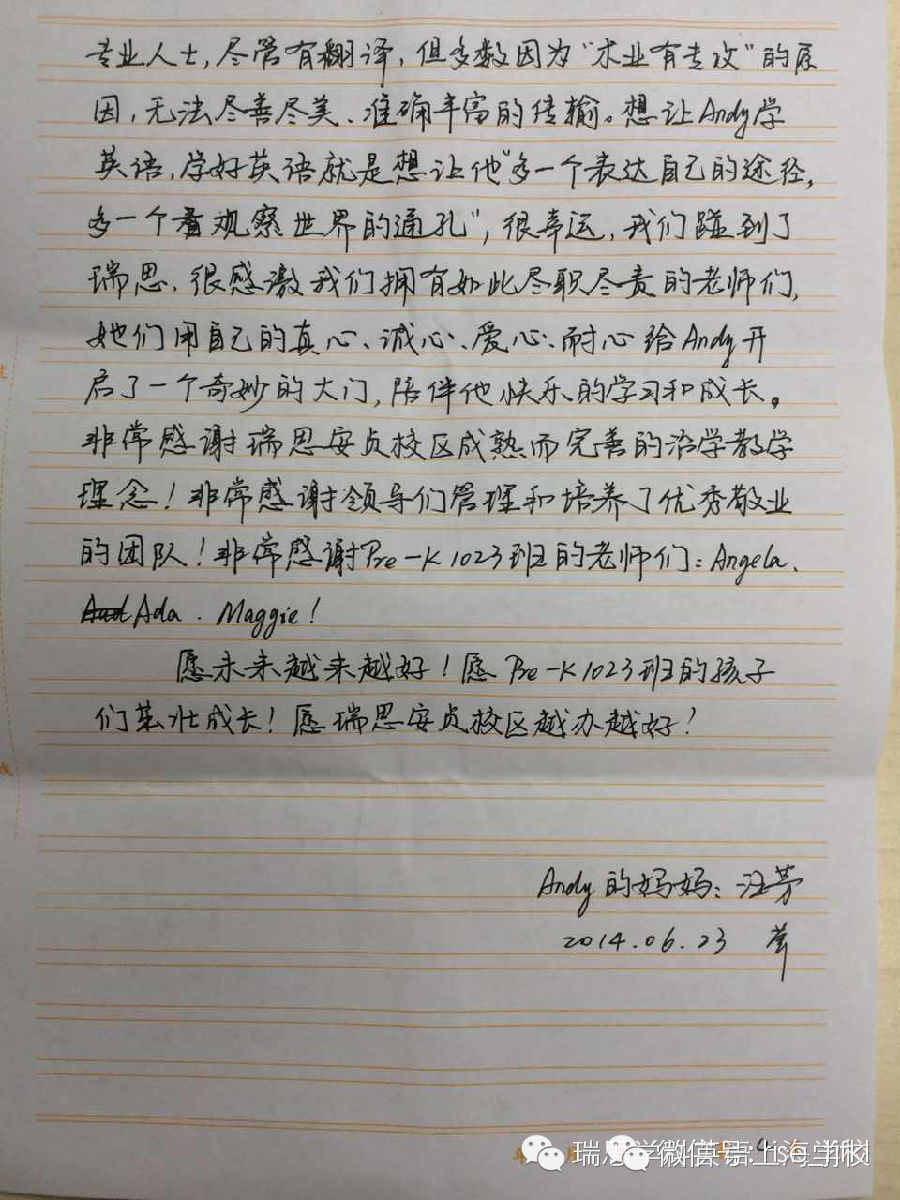 专业人士，尽管有翻译，但多数因为“术业有专攻”的原
因，无法尽善尽美、准确丰富的传输。想让Andy学
英语，学好英语就是想让他“多一个表达自己的途径，
多一个看观察世界的通孔”，很幸运，我们碰到了
瑞思，很感激我们拥有如此尽职尽责的老师们，
她们用自己的真心、诚心、爱心、耐心给Andy开
启了一个奇妙的大门，陪伴他快乐的学习和成长。
非常感谢瑞思安贞校区成熟而完善的治学教学
理念！非常感谢领导们管理和培养了优秀敬业
的团队！非常感谢Pre-K1023班的老师们：Angela、
Ada．Maggie！
愿未来越来越好！愿Pre-K1023班的孩子
们茁壮成长！愿瑞思安贞校区越办越好！
Andy的妈妈：汪芳
2014.06.23